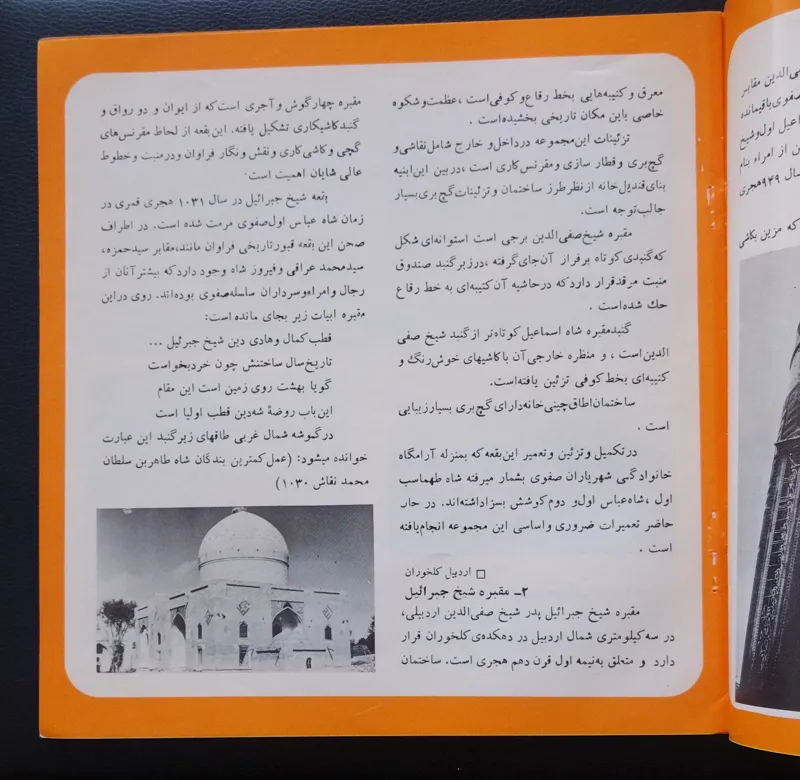 معرق و کتیبه‌هایی بخط رقاع و کوفی است ، عظمت و شکوه
خاصی باین مکان تاریخی بخشیده است .
تزئینات این مجموعه در داخل و خارج شامل نقاشی و
گچ بری و قطار سازی و مقرنس کاری است ، در بین این ابنیه
بنای قندیل خانه از نظر طرز ساختمان و تزئینات گچ بری بسیار
جالب توجه است .
مقبره شیخ صفی الدین برجی است استوانه‌ای شکل
که گنبدی کوتاه بر فراز آن جای گرفته ، در زیر گنبد صندوق
منبت مرقد قرار دارد که در حاشیه آن کتیبه‌ای به خط رقاع
حك شده است .
گنبد مقبره شاه اسماعیل کوتاه‌تر از گنبد شیخ صفی
الدین است ، و منظره خارجی آن با کاشیهای خوش رنگ و
کتیبه‌ای بخط کوفی تزئین یافته است.
ساختمان اطاق چینی خانه دارای گچ بری بسیار زیبایی
است .
در تکمیل و تزئین و تعمیر این بقعه که بمنزله آرامگاه
خانوادگی شهریاران صفوی بشمار میرفته شاه طهماسب
اول ، شاه عباس اول و دوم کوشش بسزا داشته‌اند. در حال
حاضر تعمیرات ضروری و اساسی این مجموعه انجام یافته
است .
□ اردبیل کلخوران
۲ـ مقبره شیخ جبرائیل
مقبره شیخ جبرائیل پدر شیخ صفی الدین اردبیلی،
در سه کیلومتری شمال اردبیل در دهکده‌ی کلخوران قرار
دارد و متعلق به نیمه اول قرن دهم هجری است. ساختمان
مقبره چهارگوش و آجری است که از ایوان و دو رواق و
گنبد کاشیکاری تشکیل یافته. این بقعه از لحاظ مقرنس‌های
گچی و کاشی کاری و نقش و نگار فراوان و در منبت و خطوط
عالی شایان اهمیت است.
بقعه شیخ جبرائیل در سال ۱۰۳۱ هجری قمری در
زمان شاه عباس اول صفوی مرمت شده است. در اطراف
صحن این بقعه قبور تاریخی فراوان مانند، مقابر سید حمزه،
سید محمد عراقی و فیروز شاه وجود دارد که بیشتر آنان از
رجال و امراء و سرداران سلسله صفوی بوده‌اند. روی در این
مقبره ابیات زیر بجای مانده است:
قطب کمال و هادی دین شیخ جبرئیل ...
تاریخ سال ساختنش چون خرد بخواست
گویا بهشت روی زمین است این مقام
این باب روضهٔ شه دین قطب اولیا است
در گوشه شمال غربی طاقهای زیر گنبد این عبارت
خوانده میشود: (عمل کمترین بندگان شاه طاهر بن سلطان
محمد نقاش ۱۰۳۰)
ی‌الدین مقابر
صفوی باقیمانده
اعیل اول و شیخ
ن از امراء بنام
سال ۹۴۹ هجری
که مزین بکاشی